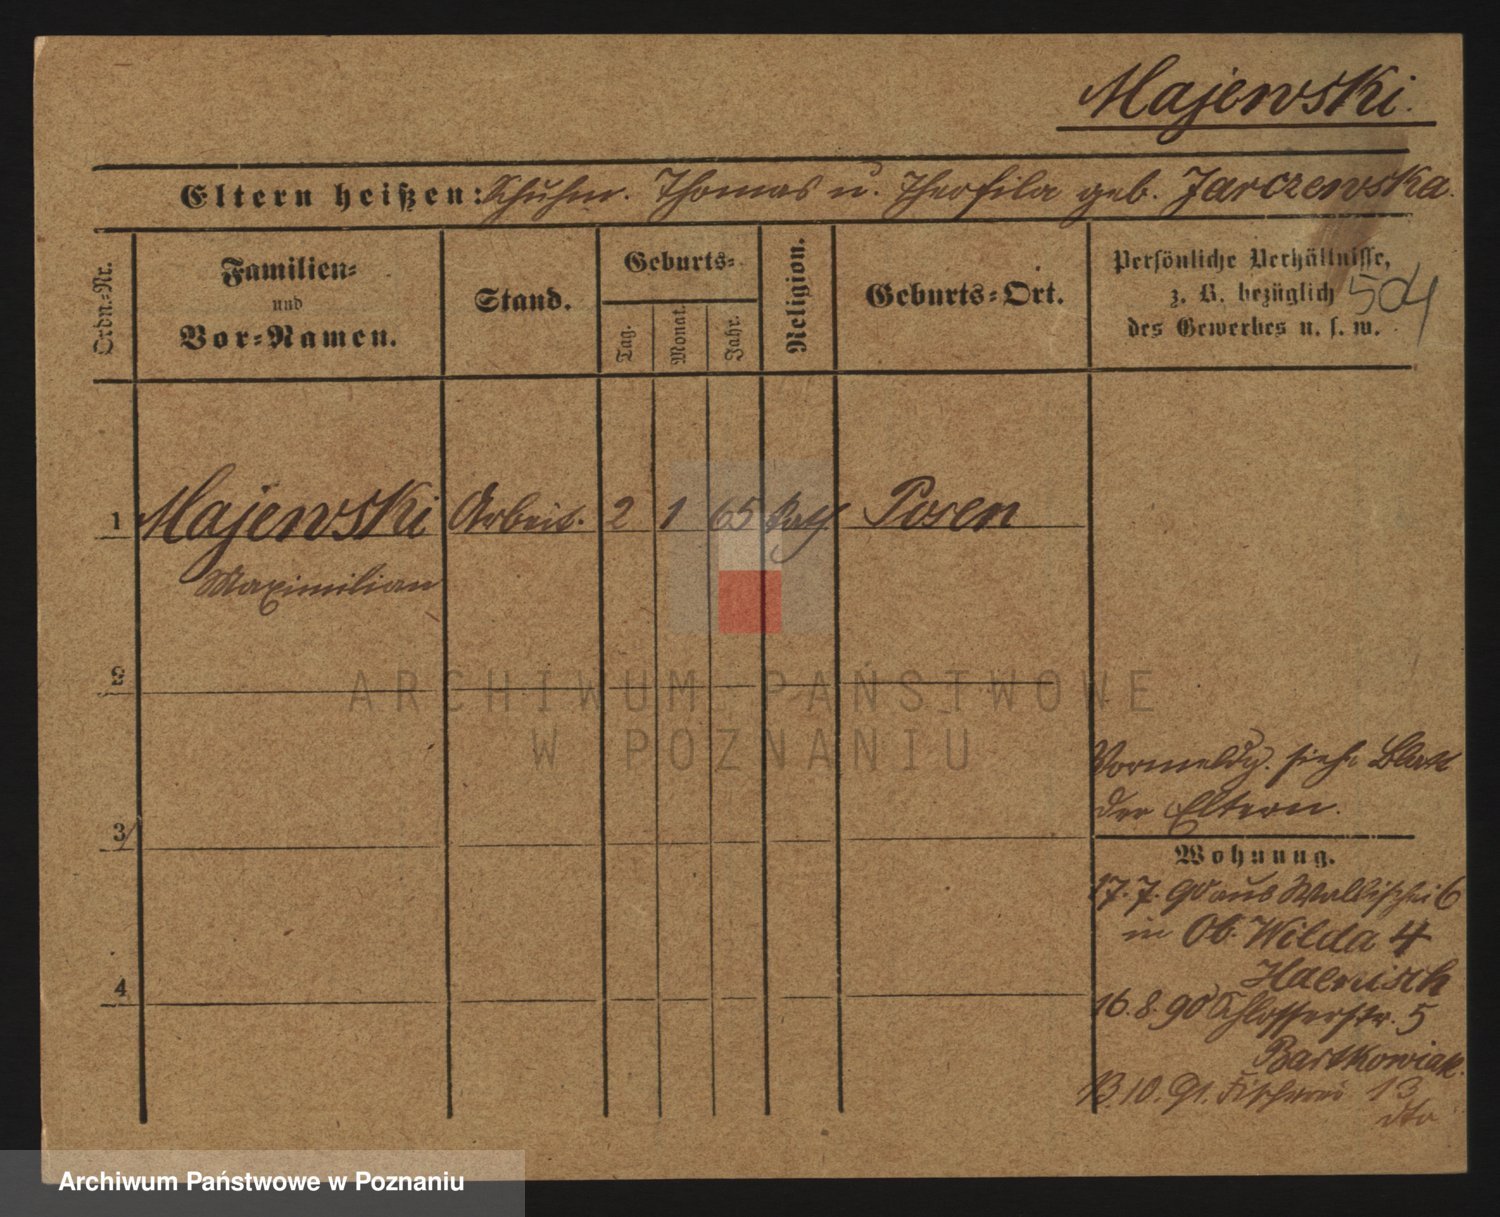 Majewski.
Eltern heißen: Schuhm. Thomas u. Theofila geb. Jarczewska.
Ordn.=Nr.
Familien=
und
Vor=Namen.
Stand.
Geburts=
Tag.
Monat.
Jahr.
Religion.
Geburts=Ort.
Persönliche Verhältnisse,
z. B. bezüglich
des Gewerbes u. s. w.
504
1 Majewski Arbeit. 2 1 65 Kath Posen
Maximilian
2
3
4
ARCHIWUM PAŃSTWOWE
W POZNANIU
Vormeldg. siehe Blatt
der Eltern.
Wohnung.
17.7.90 aus Wallischei 6
in Ob. Wilda 4
Haenisch
16.8.90 Schlosserstr. 5
Bartkowiak.
13.10.91. Fischerei 13
dto
Archiwum Państwowe w Poznaniu